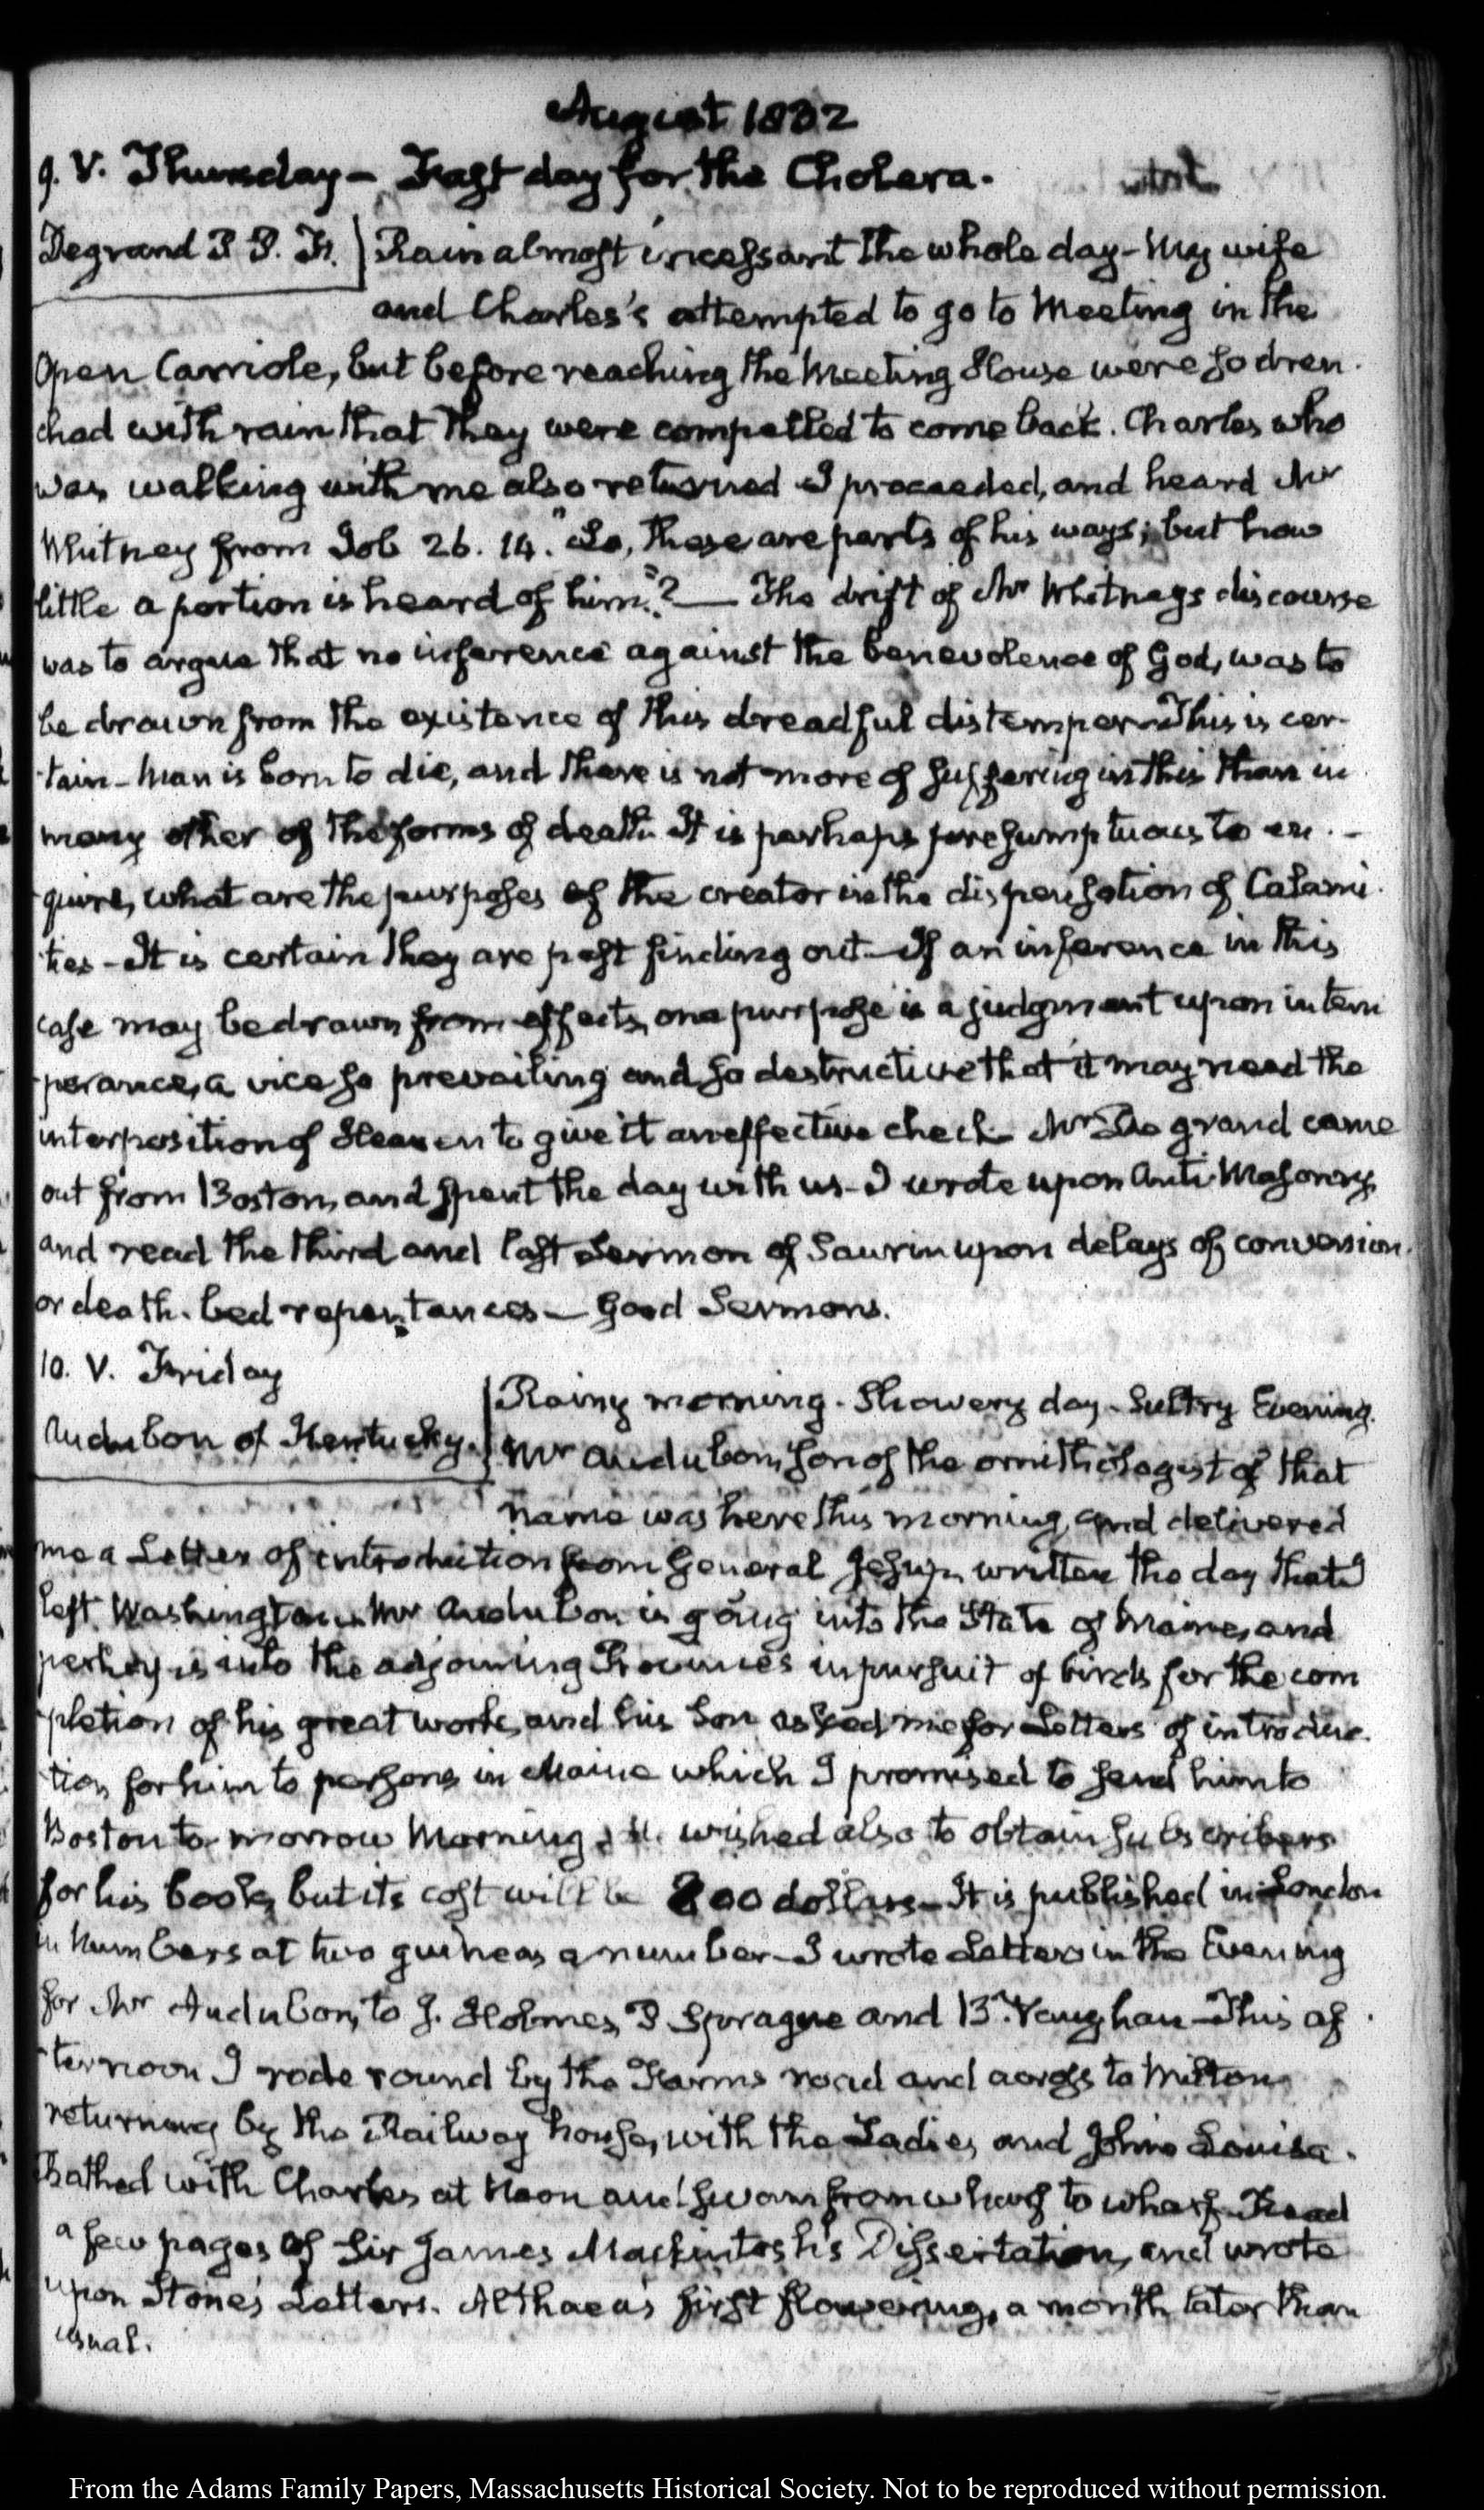 August 1832
9. V. Thursday – Fast day for the Cholera.
Degrand P. P. F. Rain almost incessant the whole day – My wife
and Charles's attempted to go to Meeting in the
Open Carriole, but before reaching the Meeting House were so dren-
ched with rain that they were compelled to come back. Charles who
was walking with me also returned I proceeded, and heard Mr
Whitney from Job 26. 14. "Lo, these are parts of his ways; but how
little a portion is heard of him."? — The drift of Mr Whitneys discourse
was to argue that no inference against the benevolence of God, was to
be drawn from the existence of this dreadful distemper – This is cer-
tain – Man is born to die, and there is not more of suffering in this than in
many other of the forms of death. It is perhaps presumptuous to en-
quire, what are the purposes of the creator in the dispensation of Calami-
ties – It is certain they are past finding out – If an inference in this
case may be drawn from effects, one purpose is a judgment upon intem-
perance, a vice so prevailing and so destructive that it may need the
interposition of Heaven to give it an effective check – Mr De grand came
out from Boston, and spent the day with us – I wrote upon Anti-Masonry,
and read the third and last Sermon of Saurin upon delays of conversion.
or death-bed repentances – Good Sermons.
10. V. Friday
Rainy morning. Showery day – Sultry Evening.
Audubon of Kentucky. Mr Audubon, son of the ornithologist of that
name was here this morning, and delivered
me a Letter of introduction from General Jesup, written the day that I
left Washington. Mr Audubon is going into the State of Maine, and
perhaps into the adjoining Provinces in pursuit of birds for the com-
pletion of his great work, and his Son asked me for Letters of introduc-
tion for him to persons in Maine which I promised to send him to
Boston to-morrow Morning. He wished also to obtain subscribers
for his book, but its cost will be 800 dollars – It is published in London
in Numbers at two guineas a number – I wrote Letters in the Evening
for Mr Audubon, to J. Holmes, P Sprague and B. Vaughan – This af-
ternoon I rode round by the Farms road and across to Milton
returning by the Railway house, with the Ladies, and John's Louisa.
Bathed with Charles at Noon and swam from wharf to wharf – Read
a few pages of Sir James Mackintosh's Dissertation, and wrote
upon Stone's Letters. Althaea's first flowering, a month later than
usual.
From the Adams Family Papers, Massachusetts Historical Society. Not to be reproduced without permission.